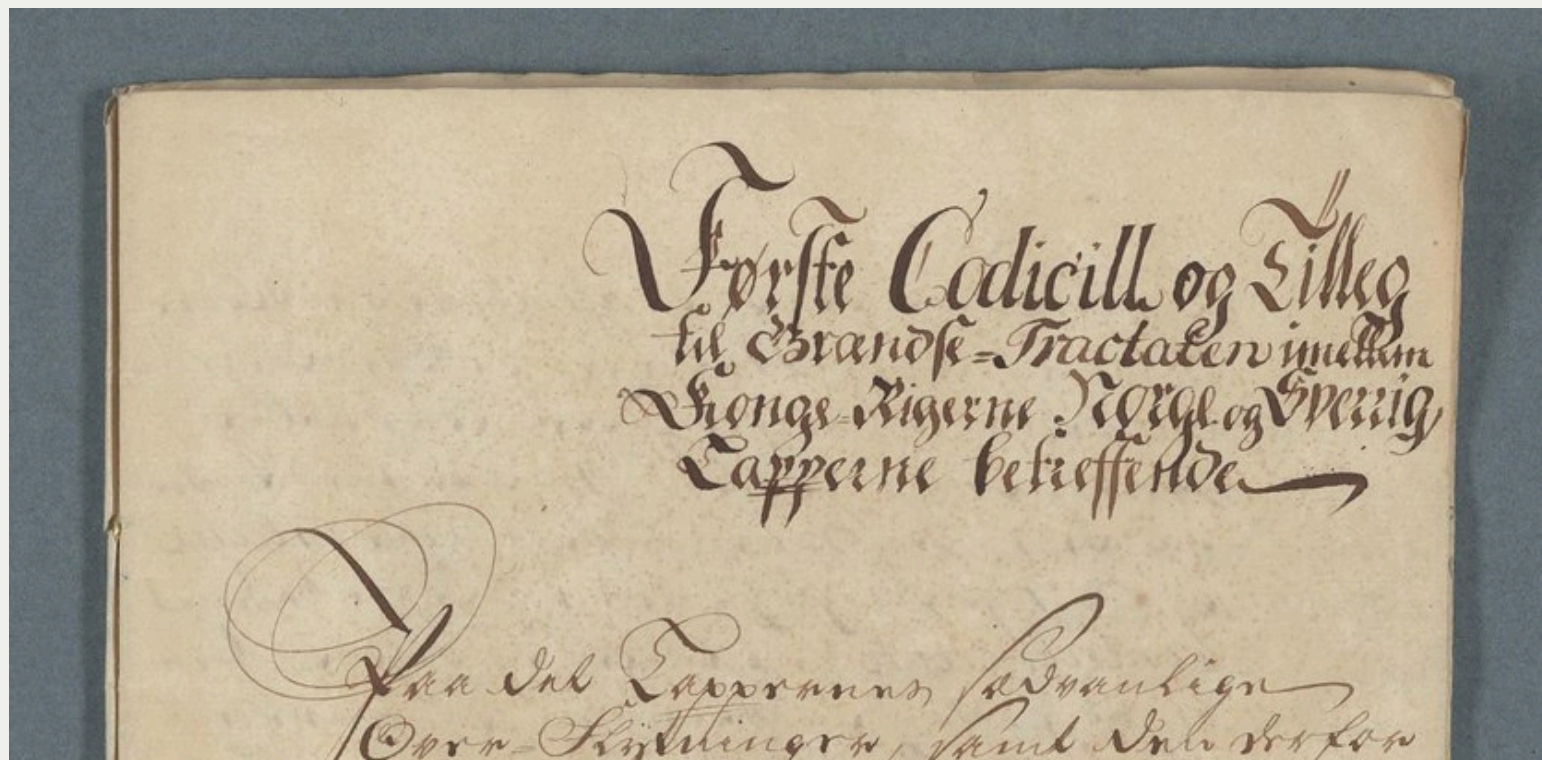 Første Codicill og Tilleg
til Grændse=Tractaten imellem
Konge=Rigerne Norge og Sverrig,
Lapperne betreffende
Paa det Lappernes sædvanlige
Over-Flytninger, samt den derfor